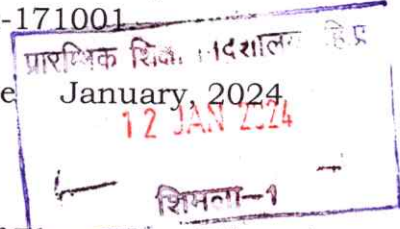 -171001
प्रारम्भिक शिक्षा निदेशालय हि.प्र
e January, 2024
12 JAN 2024
शिमला-1